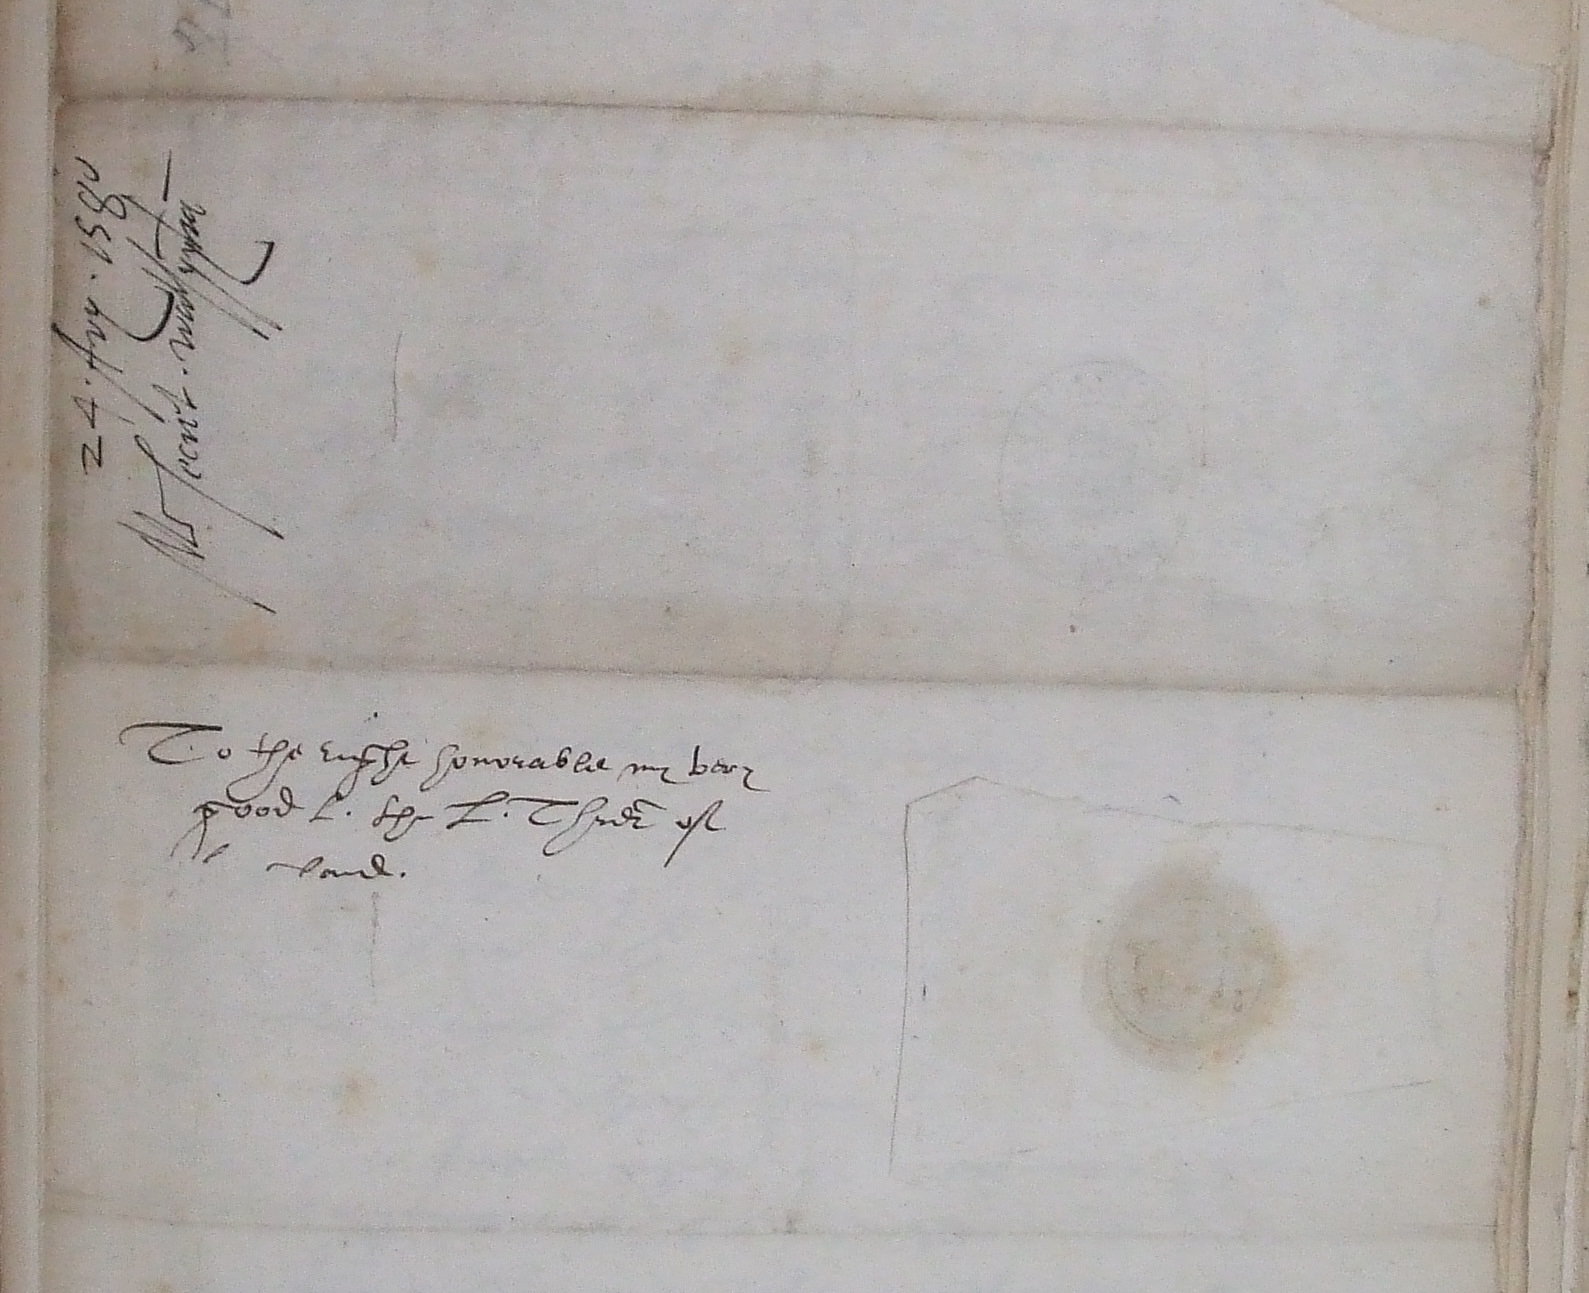 24. Aug. 1580
Mr Secret. walsyngham
To the right honorable my very
good L. the L. Threr of